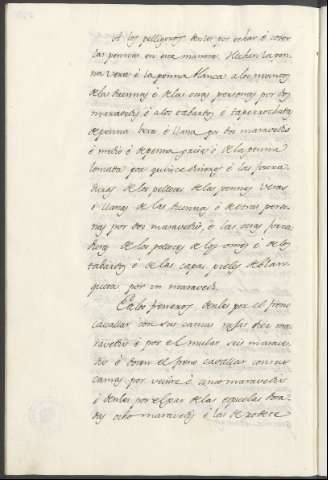 A los pelligeros denles por echar ó coser
las pennas en esta manera. Hechen la pen-
na vera ó la penna blanca a los mantos
de las duennas ó de las otras personas por dos
maravedis ó a los tabardos ó
de penna vera ó blanca por dos maravedis
ó medio ó de penna grises ó de la penna
lomada por quinse dineros ó las
de los pellotes de las pennas veras
ó blancas de las duennas ó de otras perso-
nas por dos maravedis, ó las otras
de los pellotes de los omes ó de los
tabardos ó de las capas pielles de blan-
queta por un maravedi.
En los freneros denles por el freno
cavallar con sus camas rasas dies ma-
ravedis ó por el mular seis marave-
dis ó doren el freno cavallar con sus
camas por veinte ó cinco maravedis
ó denles por el par de las espuelas dora-
das ocho maravedis ó las de